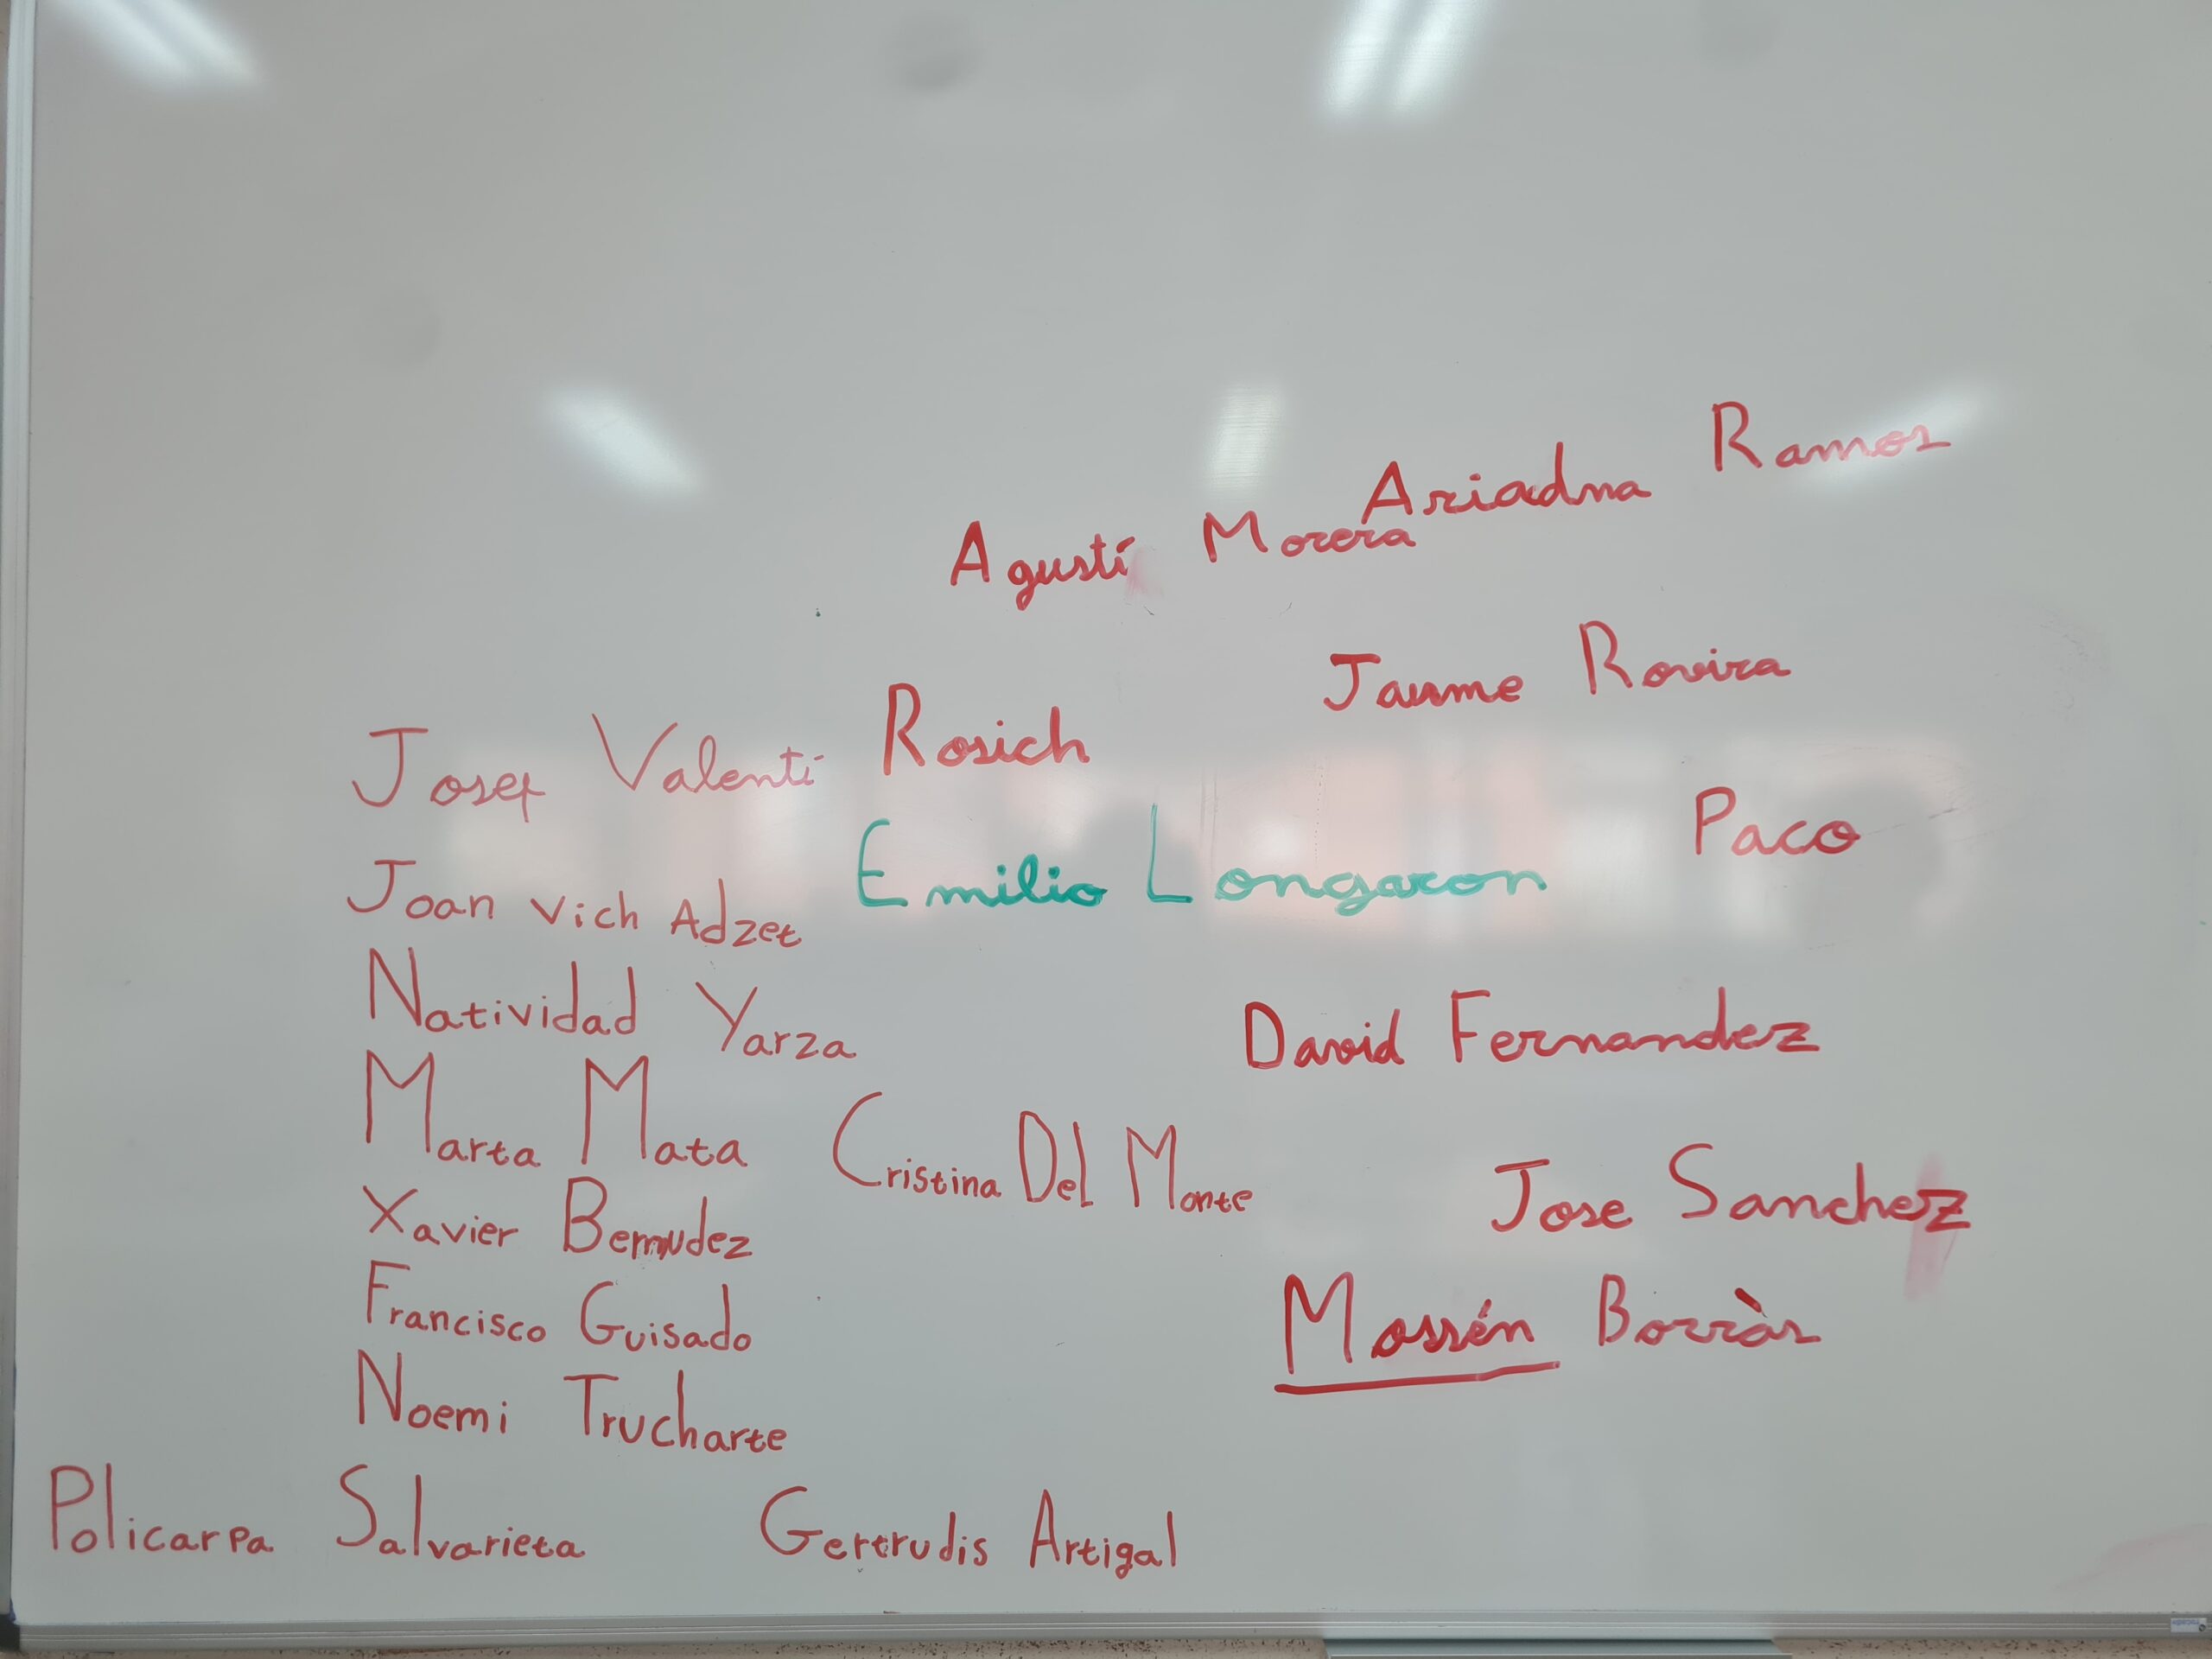 Ariadna Ramos
Agustí Morera
Jaume Rovira
Josep Valentí Rosich
Paco
Emilio Longaron
Joan Vich Adzet
Natividad Yarza
David Fernandez
Marta Mata
Cristina Del Monte
Jose Sanchez
Xavier Bermudez
Francisco Guisado
Mossén Borràs
Noemi Trucharte
Policarpa Salvarieta
Gertrudis Artigal